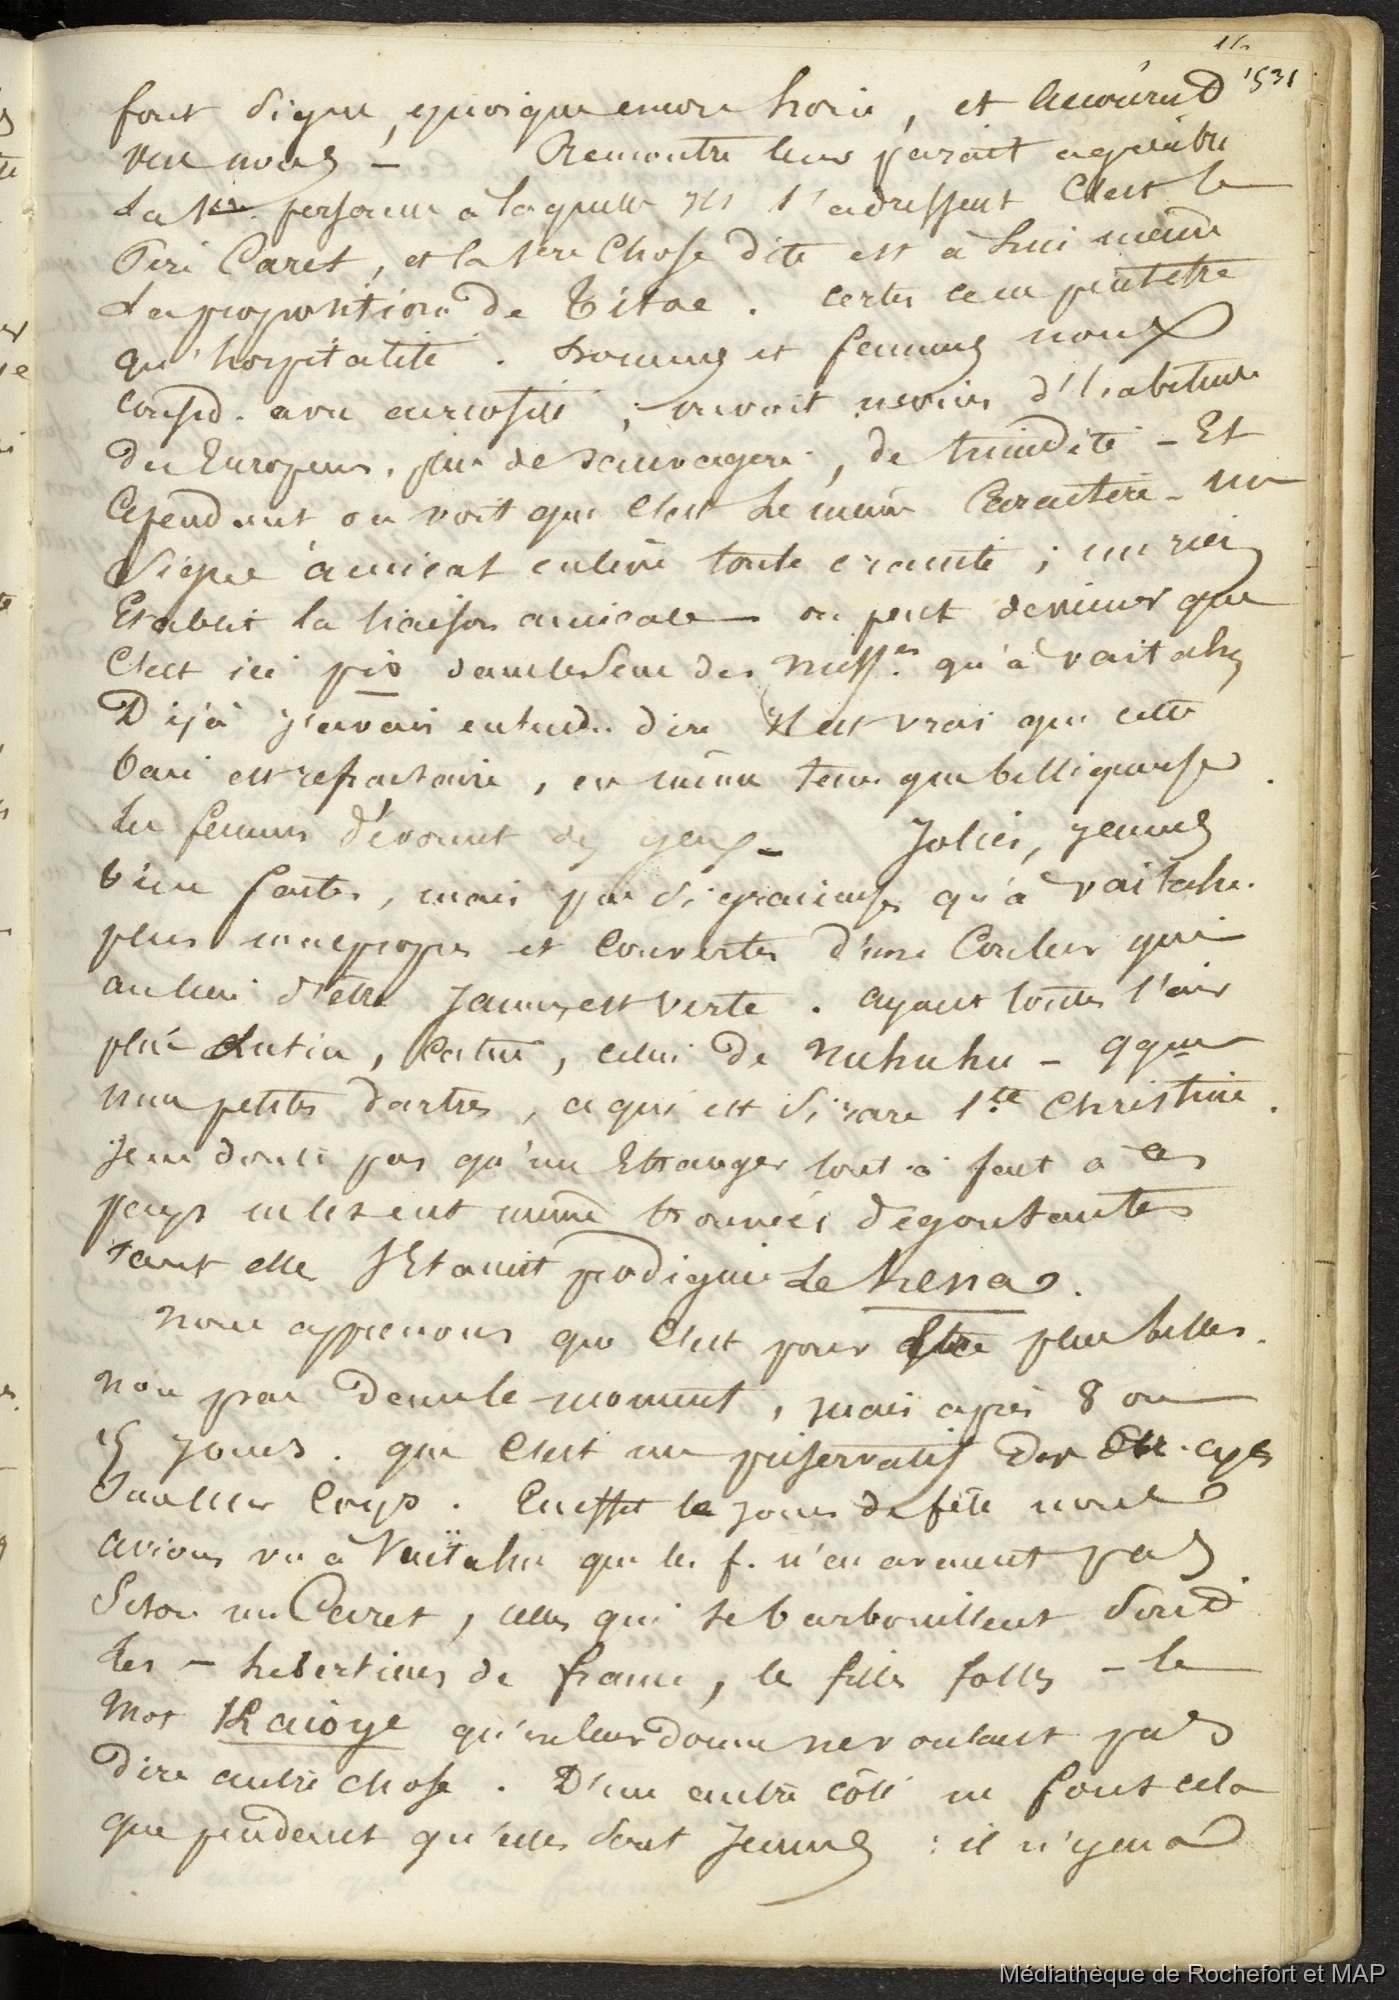 11.
1531
font signe, quoique encore loin, et accourent
vers nous — Rencontre leur parait agréable
La 1ère personne à laquelle ils s'adressent C'est le
Père Caret, et la 1ère Chose dite est à lui même
La proposition de Titoe. certes ce peut être
qu'hospitalité. hommes et femmes nous
consid. avec curiosité ; on voit moins d'habitude
des Européens, plus de sauvagerie, de timidité — Et
Cependant on voit que C'est le même Caractère — un
Signe amical enlève toute crainte ; un rien
Etablit la liaison amicale — on peut deviner que
C'est ici pis dans le sens des miss.res qu'à vaitahu
Déjà j'avais entendu dire Il est vrai que cette
baie est refractaire, en même tems que belliqueuse.
Les femmes dévorent des yeux — Jolies, jeunes
bien faites, mais pas si gracieuses qu'à vaitahu.
plus malpropres et Couvertes d'une Couleur qui
au lieu d'être Jaune est verte. ayant toutes l'air
plus lutin, calme, celui de Nuhuhu — qques
unes petites dartres, ce qui est si rare à Ste Christine.
Je ne doute pas qu'un Etranger tout à fait à ces
pays ne les eut même trouvées dégoutantes
tant elles s'Etaient prodigué Le hena.
nous apprenons que C'est pour Etre plus belles.
non pas dans le moment, mais après 8 ou
15 Jours. que C'est un préservatif
Sur leur Corps. En effet le jour de fête nous
avions vu à Vaïtahu que les f. n'en avaient pas
Selon mr Caret, celles qui se barbouillent Sont
Les — libertines de france, les filles folles — le
Mot Kaioye qu'on leur donne ne voulant pas
dire autre chose. D'un autre côté ne font cela
que pendant qu'elles sont Jeunes : il n'y en a